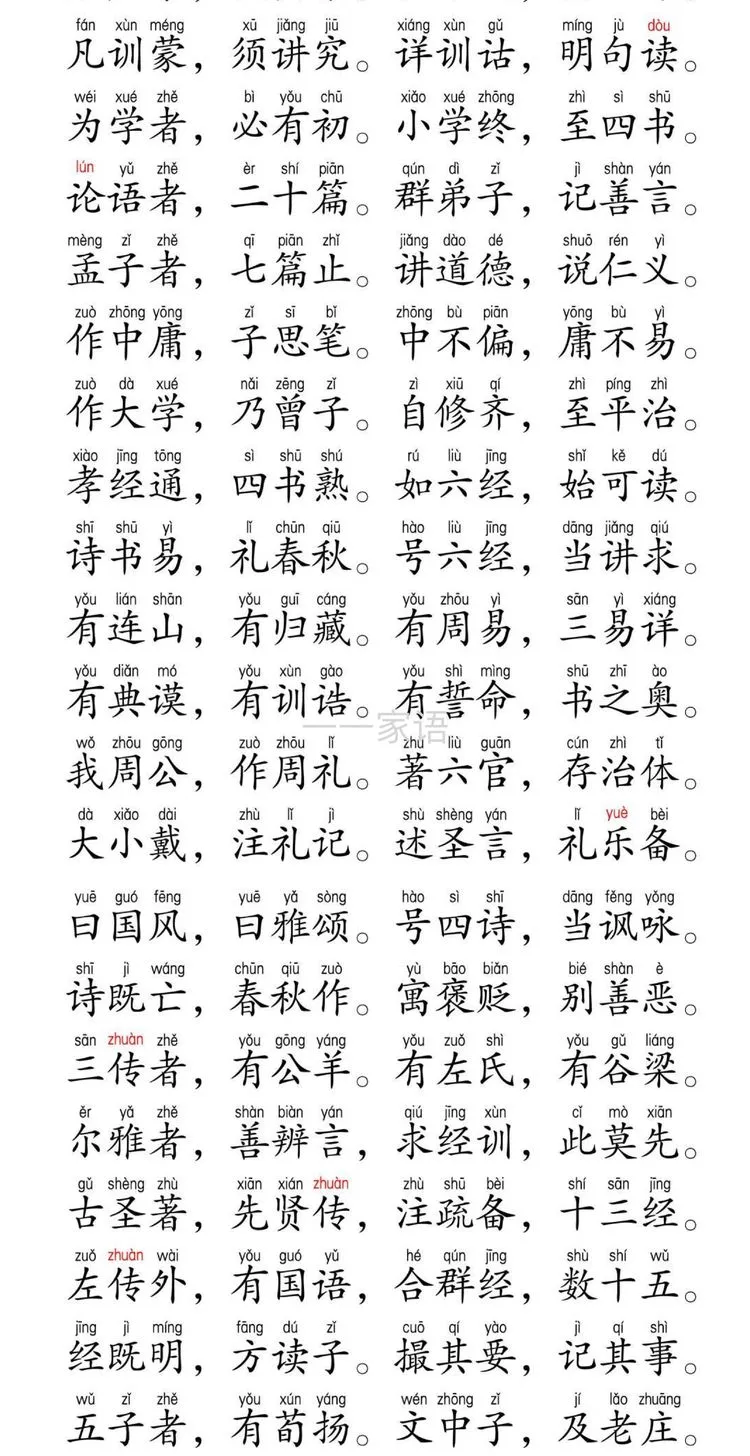 fán xùn méng xū jiǎng jiū xiáng xùn gǔ míng jù dòu
凡训蒙，须讲究。详训诂，明句读。
wéi xué zhě bì yǒu chū xiǎo xué zhōng zhì sì shū
为学者，必有初。小学终，至四书。
lún yǔ zhě èr shí piān qún dì zǐ jì shàn yán
论语者，二十篇。群弟子，记善言。
mèng zǐ zhě qī piān zhǐ jiǎng dào dé shuō rén yì
孟子者，七篇止。讲道德，说仁义。
zuò zhōng yōng zǐ sī bǐ zhōng bù piān yōng bù yì
作中庸，子思笔。中不偏，庸不易。
zuò dà xué nǎi zēng zǐ zì xiū qí zhì píng zhì
作大学，乃曾子。自修齐，至平治。
xiào jīng tōng sì shū shú rú liù jīng shǐ kě dú
孝经通，四书熟。如六经，始可读。
shī shū yì lǐ chūn qiū hào liù jīng dāng jiǎng qiú
诗书易，礼春秋。号六经，当讲求。
yǒu lián shān yǒu guī cáng yǒu zhōu yì sān yì xiáng
有连山，有归藏。有周易，三易详。
yǒu diǎn mó yǒu xùn gào yǒu shì mìng shū zhī ào
有典谟，有训诰。有誓命，书之奥。
一一家语
wǒ zhōu gōng zuò zhōu lǐ zhù liù guān cún zhì tǐ
我周公，作周礼。著六官，存治体。
dà xiǎo dài zhù lǐ jì shù shèng yán lǐ yuè bèi
大小戴，注礼记。述圣言，礼乐备。
yuē guó fēng yuē yǎ sòng hào sì shī dāng fěng yǒng
曰国风，曰雅颂。号四诗，当讽咏。
shī jì wáng chūn qiū zuò yù bāo biǎn bié shàn è
诗既亡，春秋作。寓褒贬，别善恶。
sān zhuàn zhě yǒu gōng yáng yǒu zuǒ shì yǒu gǔ liáng
三传者，有公羊。有左氏，有谷梁。
ěr yǎ zhě shàn biàn yán qiú jīng xùn cǐ mò xiān
尔雅者，善辨言，求经训，此莫先。
gǔ shèng zhù xiān xián zhuàn zhù shū bèi shí sān jīng
古圣著，先贤传，注疏备，十三经。
zuǒ zhuàn wài yǒu guó yǔ hé qún jīng shù shí wǔ
左传外，有国语，合群经，数十五。
jīng jì míng fāng dú zǐ cuō qí yào jì qí shì
经既明，方读子。撮其要，记其事。
wǔ zǐ zhě yǒu xún yáng wén zhōng zǐ jí lǎo zhuāng
五子者，有荀扬。文中子，及老庄。